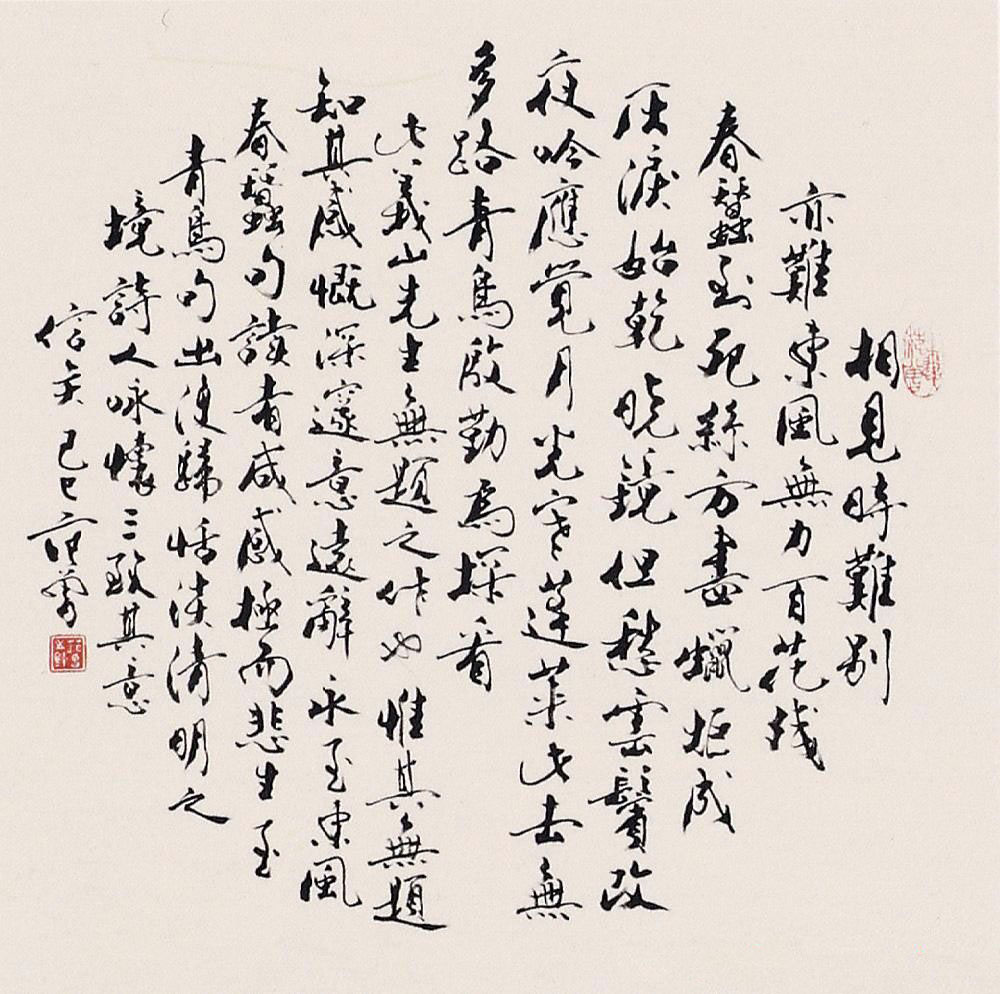 相見時難別
亦難東風無力百花殘
春蠶到死絲方盡蠟炬成
灰淚始乾曉鏡但愁雲鬢改
夜吟應覺月光寒蓬萊此去無
多路青鳥殷勤為探看
此義山先生無題之作也惟其無題
知其感慨深邃意遠辭永至東風
春蠶句讀者咸感極而悲生至
青鳥句出便歸恬淡清明之
境詩人咏懷三致其意
信矣己巳范曾